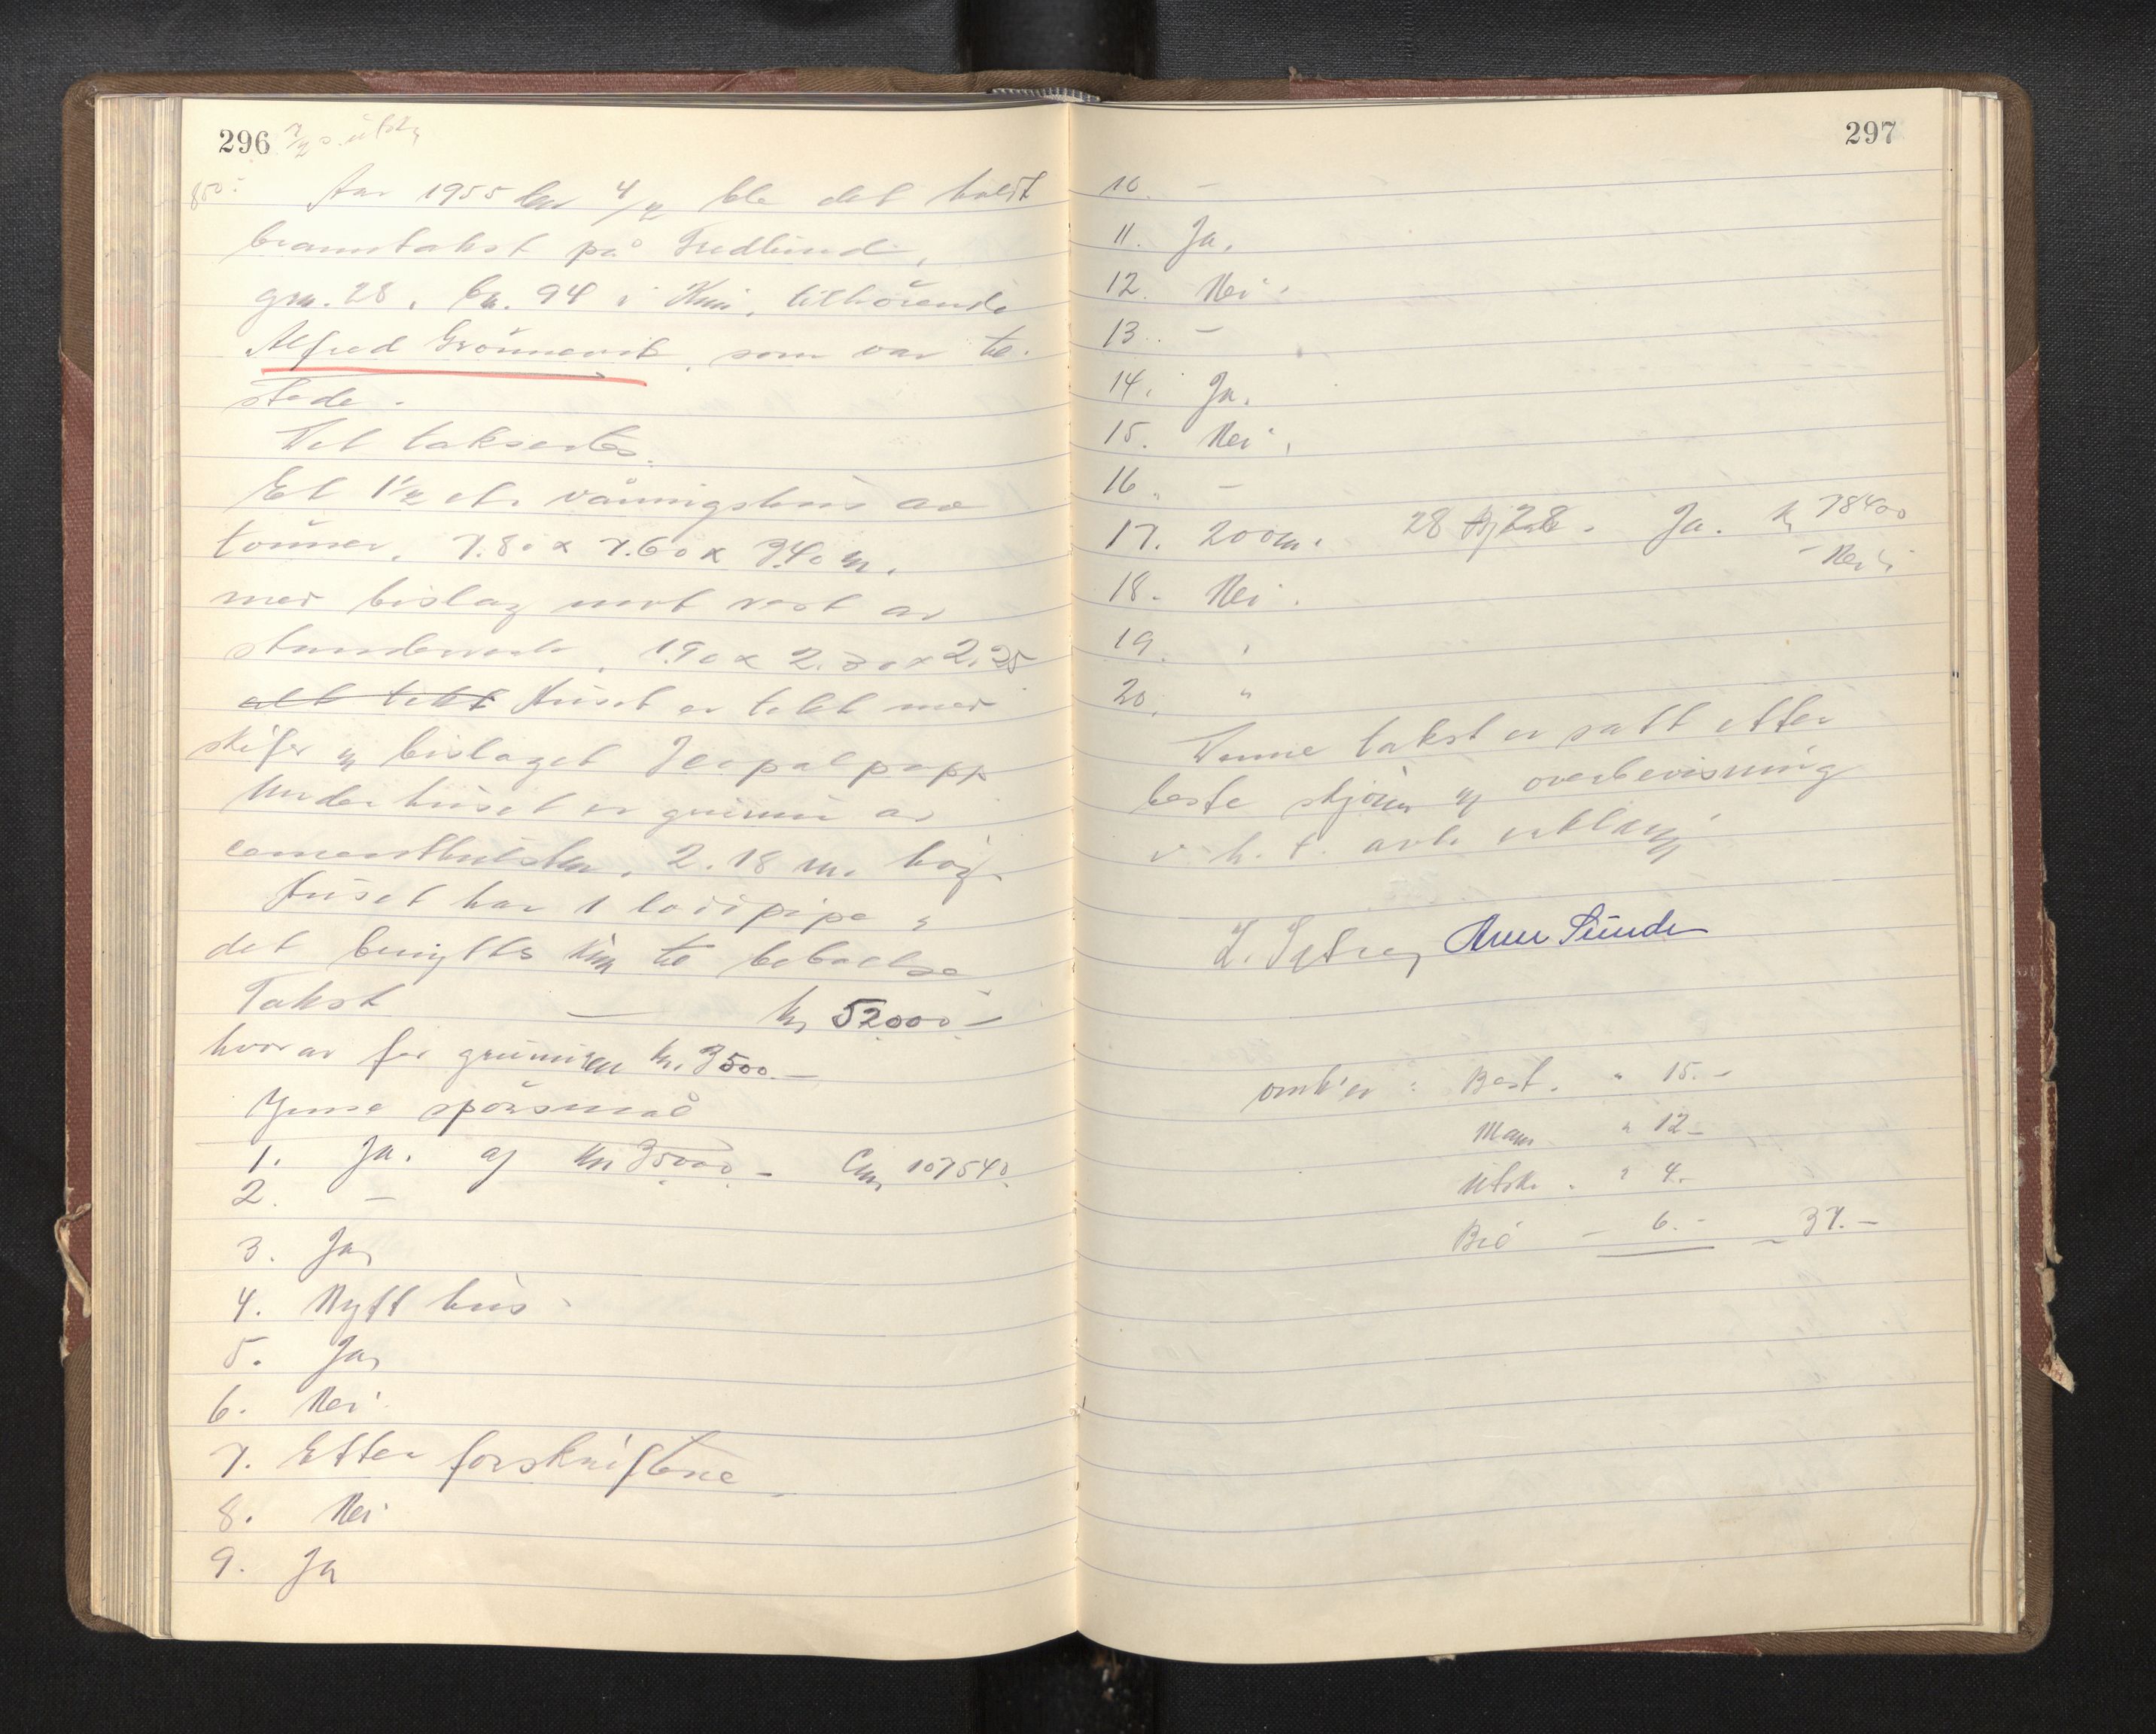 296
850.-
Aar 1955 den 4/2 ble det holdt
branntakst på Fredlund,
gnr. 28, bn. 94 i tilhörende
Alfred Grönnevik, som var til
stede.
Det takseertes.
Et 1½ et. våningshus av
tömmer, 7.80 x 7.60 x 3.40 m.
med bislag mot vest av
1.90 x 2.30 x 2.25
alt tekt Huset er tekt med
skifer og bislaget Icopalpapp
Under huset er grunnmur av
cementbruksten, 2.18 m. høg.
Huset har 1 loddpipe og
det benyttes kun til beboelse
Takst — kr 52000.-
hvorav for grunnmuren kr. 3500.-
Ymse spörsmål
1. Ja. af kr 35000.- 107540.
2. -
3. Ja,
4. Nytt hus.
5. Ja,
6. Nei.
7. Etter forskriftene
8. Nei
9. Ja
297
10. -
11. Ja.
12. Nei.
13. -
14. Ja.
15. Nei.
16. -
17. 200 m. 28 Ja. kr 78400
- Nei.
18. Nei.
19. "
20. "
Denne takst er satt etter
beste skjönn og overbevisning
L. Sætrevik Arne Sunde
omk'er: Best. " 15.-
Mann " 12-
Utskr. " 4.
Bil - 6.- - 37.-